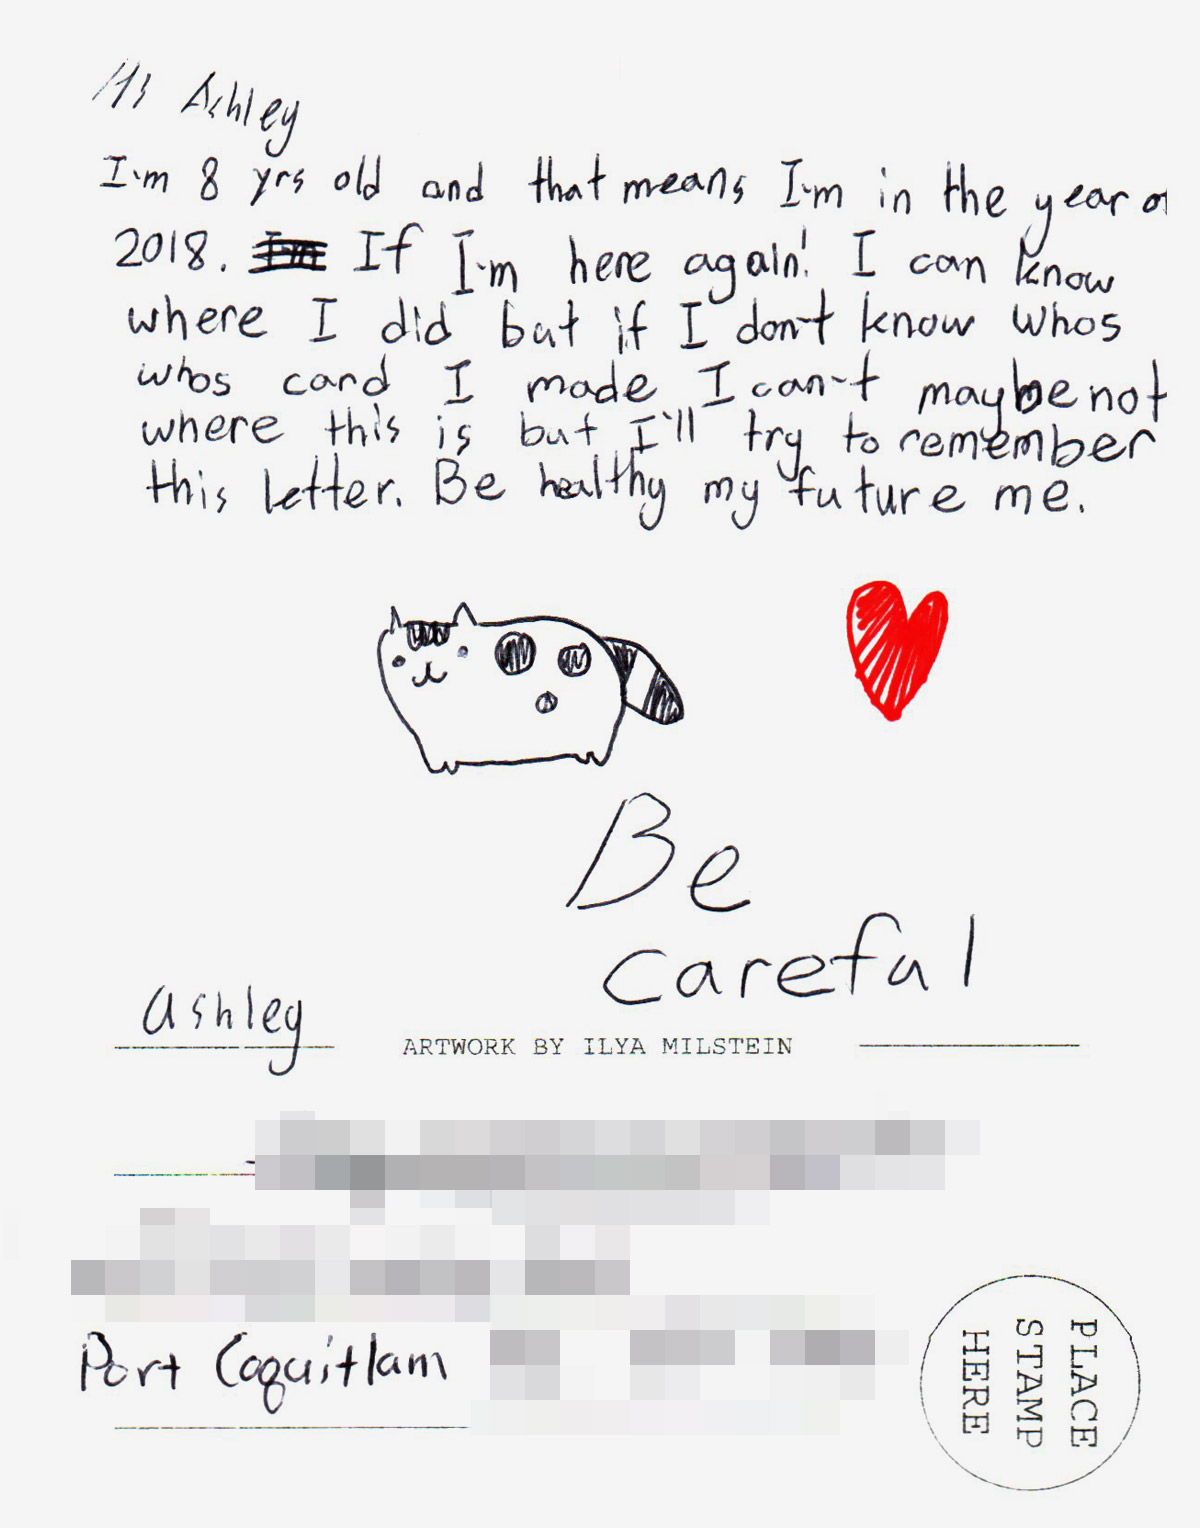 Hi Ashley
I'm 8 yrs old and that means I'm in the year of
2018. If I'm here again! I can know
where I did but if I don't know whos
whos card I made I can't maybe not
where this is but I'll try to remember
this letter. Be healthy my future me.
Be
careful
Ashley
ARTWORK BY ILYA MILSTEIN
Port Coquitlam
PLACE
STAMP
HERE